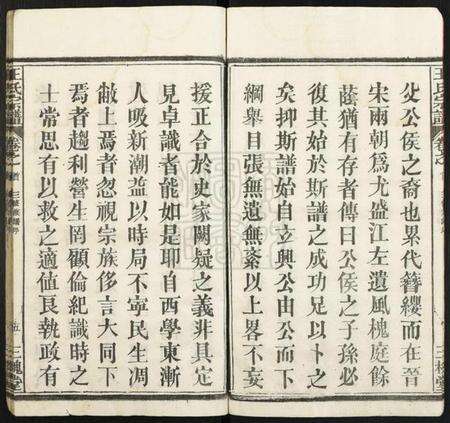 公侯之裔也累代簪纓而在晉
宋兩朝為尤盛江左遺風槐庭餘
蔭猶有存者傳曰公侯之子孫必
復其始於斯譜之成功足以卜之
矣抑斯譜始自立興公由公而下
綱舉目張無遺無紊以上畧不妄
援正合於史家闕疑之義非具定
見卓識者能如是耶自西學東漸
人吸新潮益以時局不寧民生凋
敝上焉者忽視宗族侈言大同下
焉者趨利營生罔顧倫紀識時之
士常思有以救之適値艮執政有
王氏宗譜
卷之首
五
三槐堂
王氏宗譜
卷之首
三槐堂